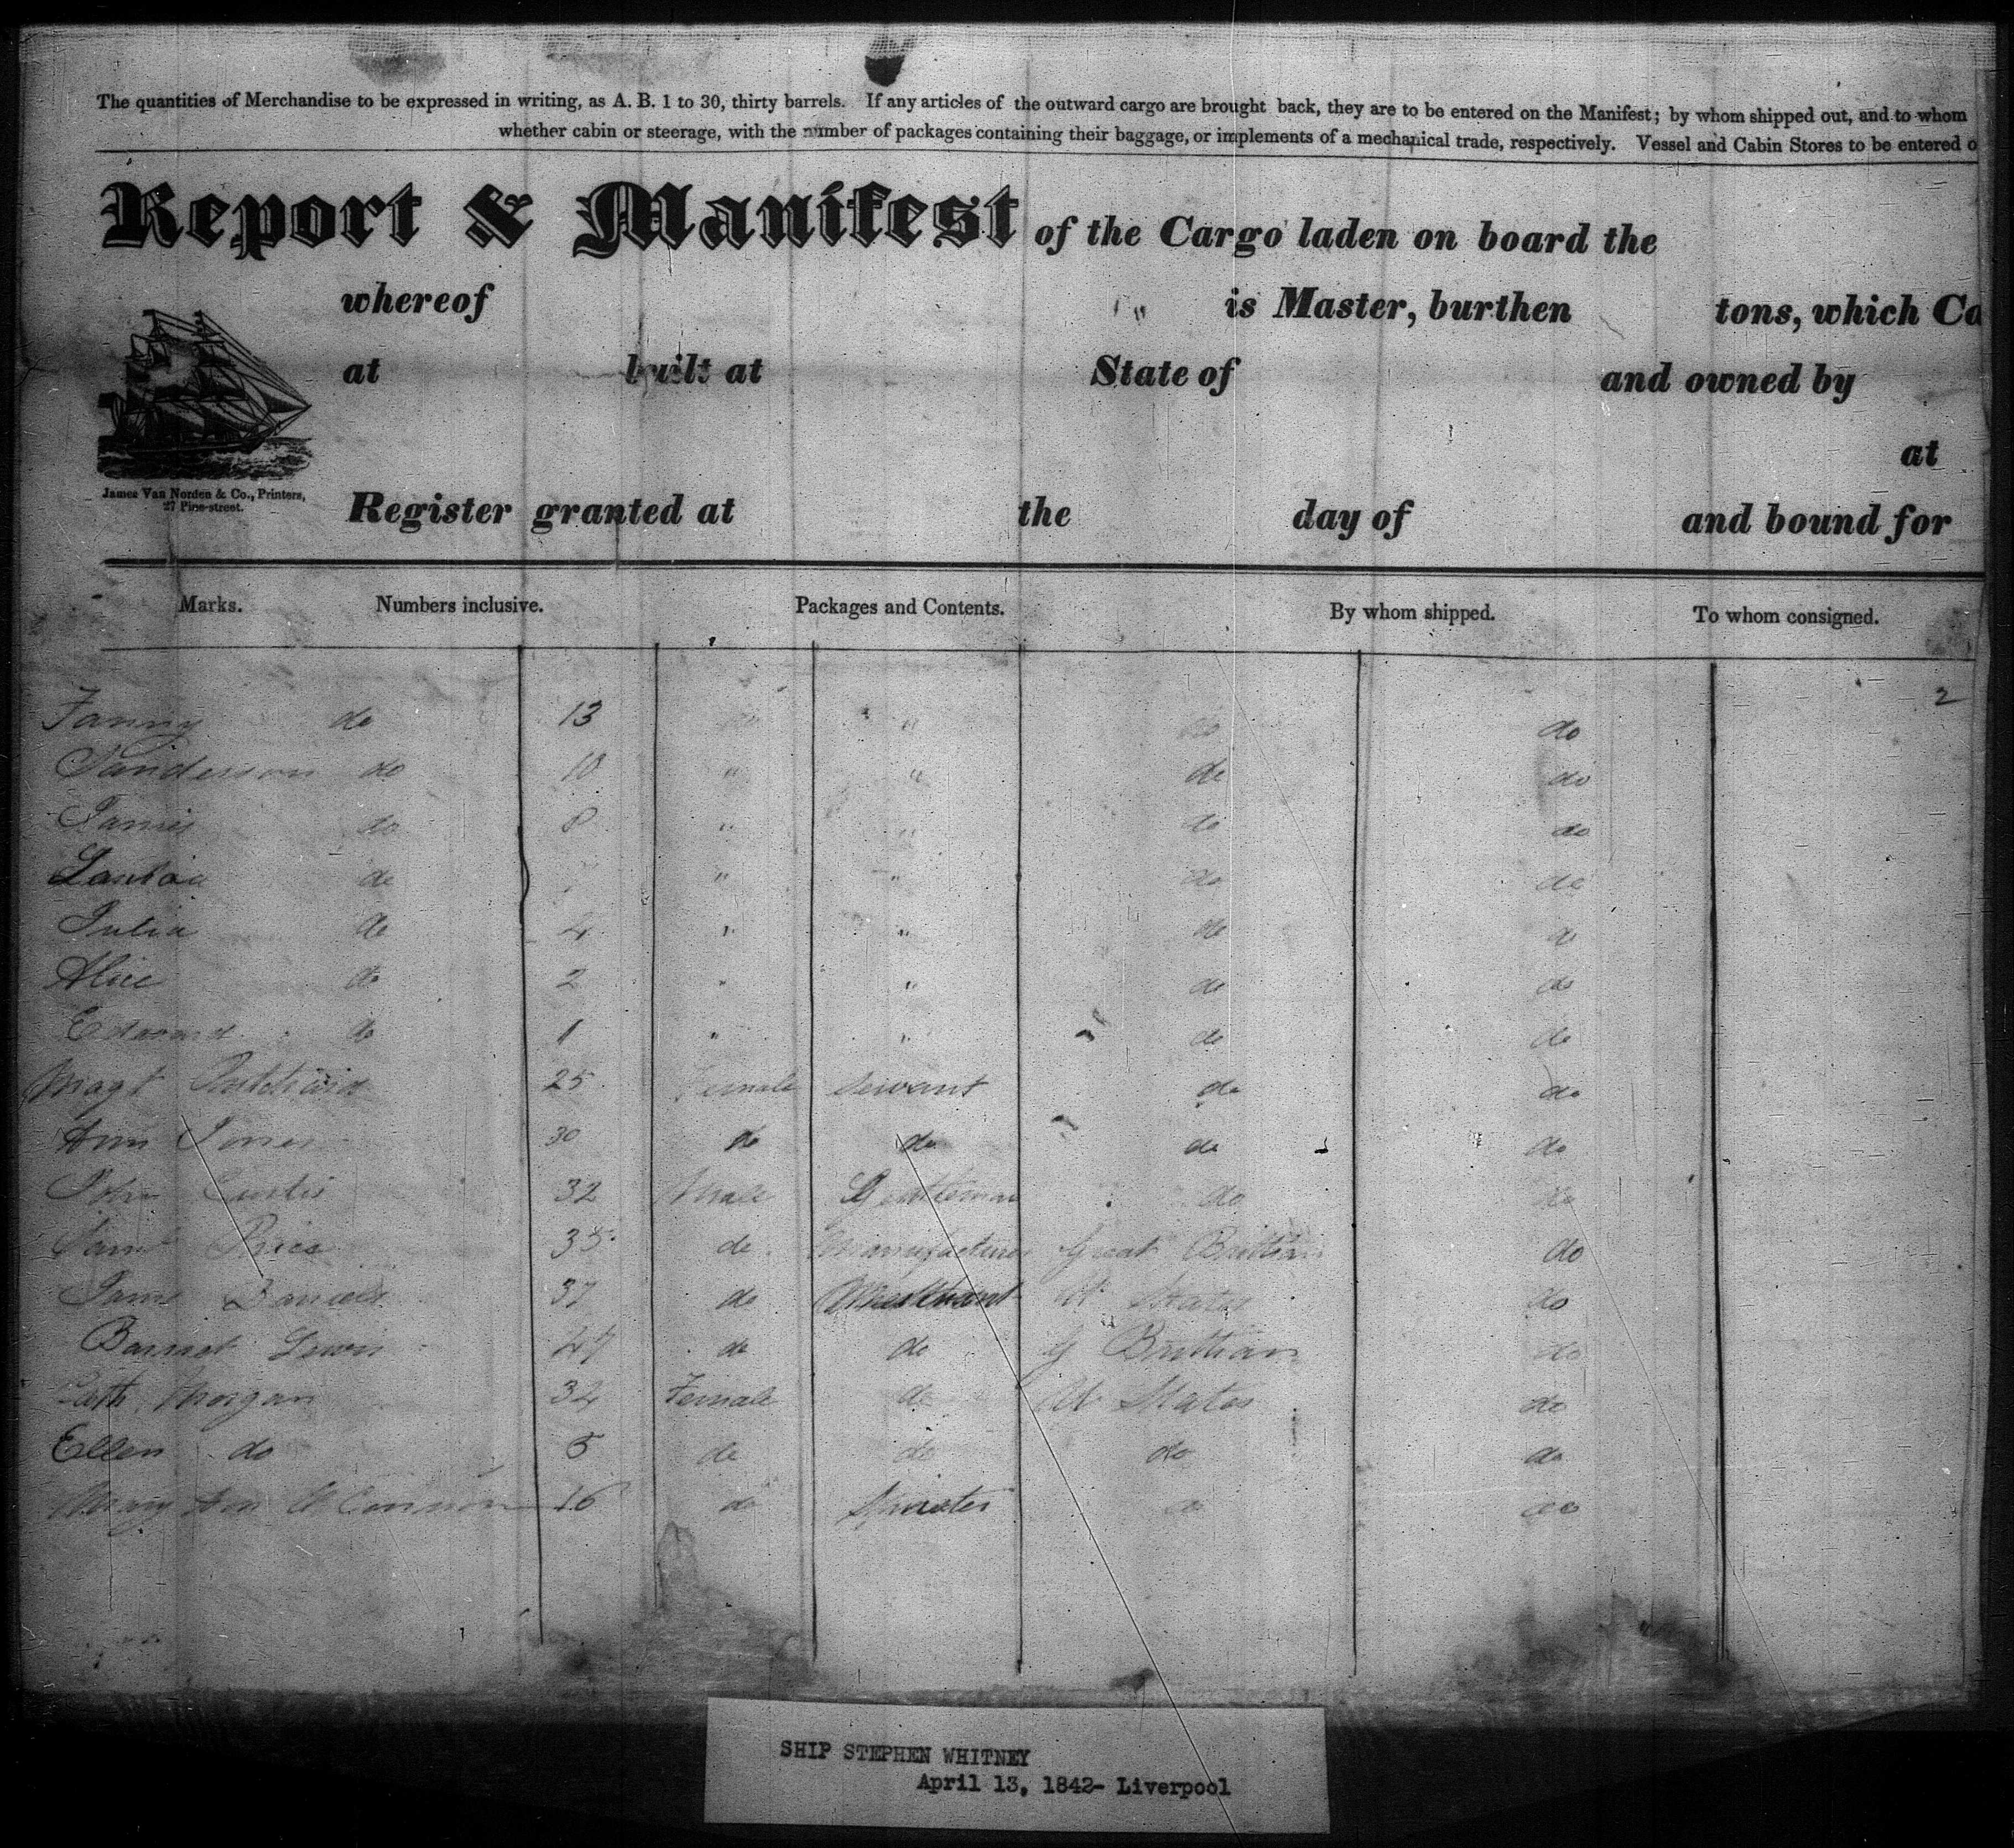 The quantities of Merchandise to be expressed in writing, as A. B. 1 to 30, thirty barrels. If any articles of the outward cargo are brought back, they are to be entered on the Manifest; by whom shipped out, and to whom
whether cabin or steerage, with the number of packages containing their baggage, or implements of a mechanical trade, respectively. Vessel and Cabin Stores to be entered o
Report & Manifest of the Cargo laden on board the
whereof is Master, burthen tons, which Ca
at built at State of and owned by
at
James Van Norden & Co., Printers,
27 Pine-street.
Register granted at the day of and bound for
Marks. Numbers inclusive. Packages and Contents. By whom shipped. To whom consigned.
2
Fanny do 13 " " do do
Sanderson do 10 " " do do
James do 8 " " do do
do " " do do
Julia do 4 " " do do
Alice do 2 " " do do
Edward do 1 " " do do
Magt 25 Female Servant do do
Ann Jones 30 do do do do
John Curtis 32 Male Gentleman do do
Price 35 do Manufacturer Great Brittian do
Daniels 37 do Merchant U States do
Barnet Lewis 47 do do G Brittian do
Cath. Morgan 32 Female do U States do
Ellen do 5 do do do do
Mary Ann 16 do Spinster do do
SHIP STEPHEN WHITNEY
April 13, 1842- Liverpool